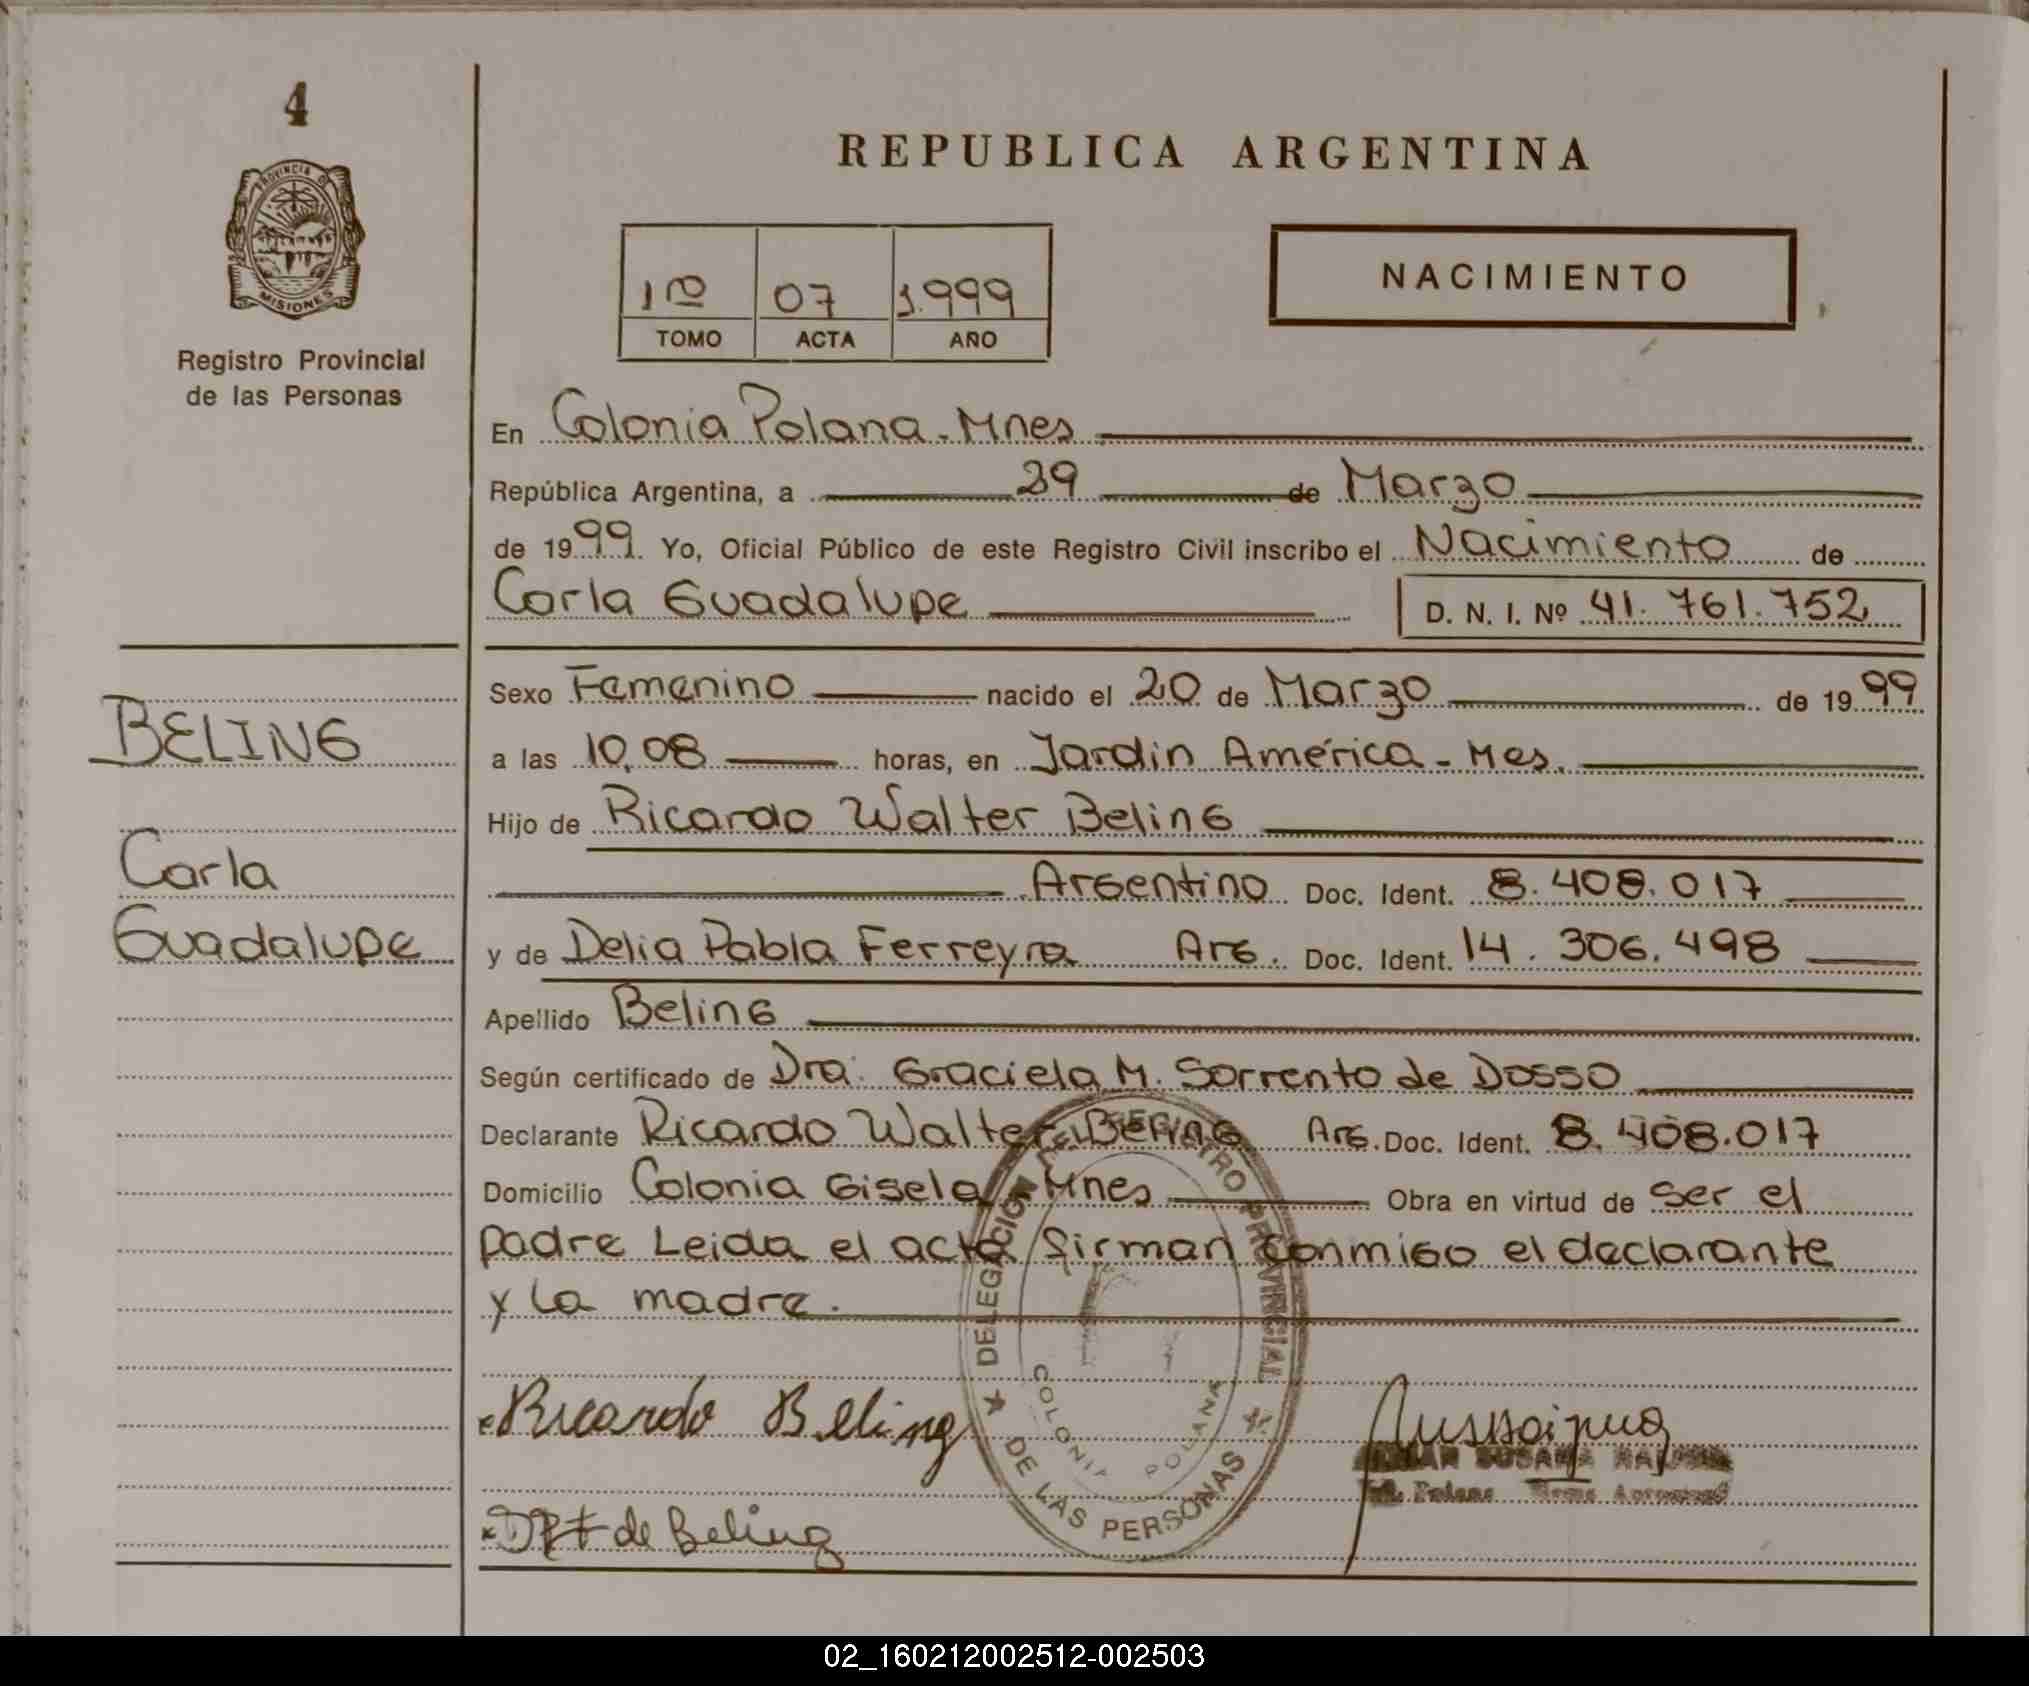 4
PROVINCIA DE
MISIONES
Registro Provincial
de las Personas
REPUBLICA ARGENTINA
1º 07 1.999
TOMO ACTA AÑO
NACIMIENTO
En Colonia Polana - Mnes
República Argentina, a 29 de Marzo
de 1999. Yo, Oficial Público de este Registro Civil inscribo el Nacimiento de
Carla Guadalupe D. N. I. Nº 41.761.752
BELING
Carla
Guadalupe
Sexo Femenino nacido el 20 de Marzo de 1999
a las 10,08 horas, en Jardin América - Mes.
Hijo de Ricardo Walter Beling
Argentino Doc. Ident. 8.408.017
y de Delia Pabla Ferreyra Arg. Doc. Ident. 14.306.498
Apellido Beling
Según certificado de Dra. Graciela M. Sorrento de Dosso
Declarante Ricardo Walter Beling Arg. Doc. Ident. 8.408.017
Domicilio Colonia Gisela - Mnes Obra en virtud de ser el
padre Leida el acta firman conmigo el declarante
y la madre.
DELEGACION DEL REGISTRO PROVINCIAL
DE LAS PERSONAS
COLONIA POLANA
Ricardo Beling
de Beling
SUSANA
02_160212002512-002503